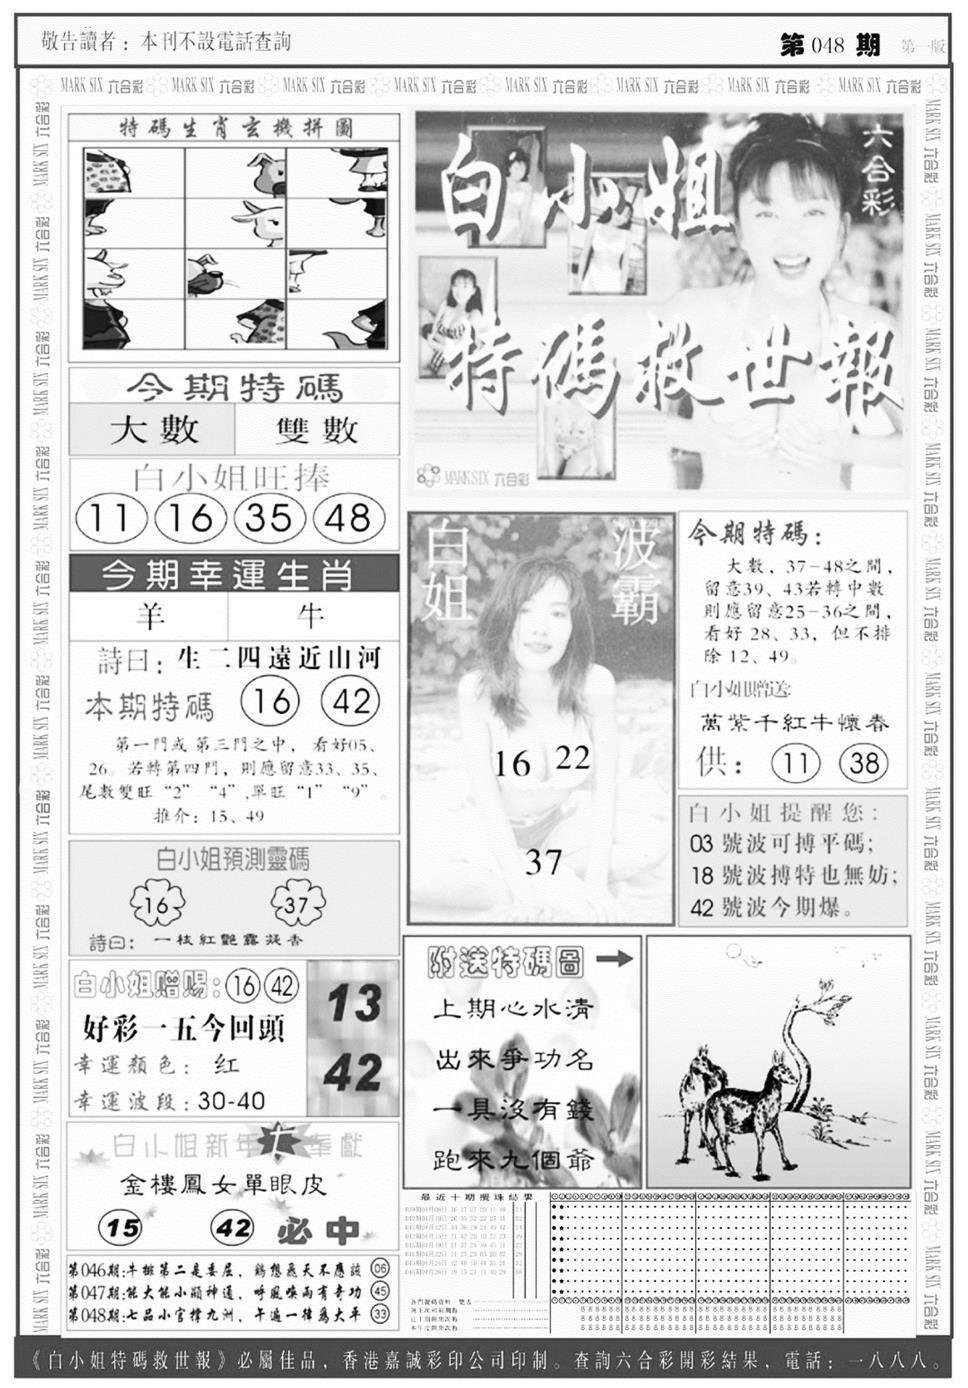 敬告讀者：本刊不設電話查詢
第 048 期 第一版
MARK SIX 六合彩 MARK SIX 六合彩 MARK SIX 六合彩 MARK SIX 六合彩 MARK SIX 六合彩 MARK SIX 六合彩 MARK SIX 六合彩 MARK SIX 六合彩
特碼生肖玄機拼圖
今期特碼
大數 雙數
白小姐旺捧
11 16 35 48
今期幸運生肖
羊 牛
詩曰：生二四遠近山河
本期特碼 16 42
第一門或第三門之中，看好05、
26。若轉第四門，則應留意33、35、
尾數雙旺“2”“4”,單旺“1”“9”。
推介：15、49
白小姐預測靈碼
16 37
詩曰：一枝紅艷露凝香
白小姐贈賜：16 42
好彩一五今回頭
幸運顏色：红
幸運波段：30-40
13
42
白小姐新年 奉獻
金樓鳳女單眼皮
15 42 必中
第046期:牛排第二是委屈，鷄想飛天不應該 06
第047期:能大能小顯神通，呼風喚雨有奇功 45
第048期:七品小官擇九洲，午遍一律爲太平 33
六合彩
白小姐
特碼救世報
MARK SIX 六合彩
白姐 波霸
16 22
37
今期特碼：
大數，37-48之間，
留意39、43若轉中數
則應留意25-36之間，
看好 28、33，但不排
除 12、49。
白小姐贈送:
萬紫千紅牛懷春
供： 11 38
白小姐提醒您：
03 號波可搏平碼；
18 號波搏特也無妨；
42 號波今期爆。
附送特碼圖
上期心水清
出來爭功名
一具没有錢
跑來九個爺
最近十期攪珠結果
《白小姐特碼救世報》必屬佳品，香港嘉誠彩印公司印制。查詢六合彩開彩結果，電話：一八八八。